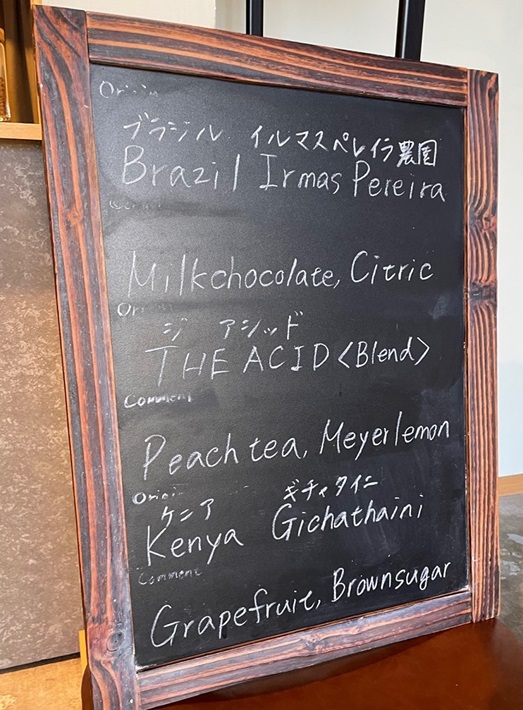 Origin
ブラジル イルマスペレイラ農園
Brazil Irmas Pereira
Milkchocolate, Citric
Ori
ジ アシッド
THE ACID <Blend>
Comment
Peach tea, Meyer lemon
Origi
ケニア ギチャタイニ
Kenya Gichathaini
Comment
Grapefruit, Brownsugar